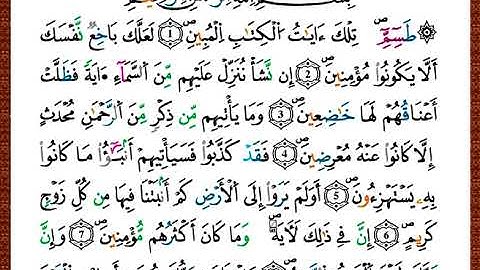 طسٓمٓ تِلْكَ ءَايَٰتُ ٱلْكِتَٰبِ ٱلْمُبِينِ ١ لَعَلَّكَ بَٰخِعٞ نَّفْسَكَ
أَلَّا يَكُونُوا۟ مُؤْمِنِينَ ٢ إِن نَّشَأْ نُنَزِّلْ عَلَيْهِم مِّنَ ٱلسَّمَآءِ ءَايَةٗ فَظَلَّتْ
أَعْنَٰقُهُمْ لَهَا خَٰضِعِينَ ٣ وَمَا يَأْتِيهِم مِّن ذِكْرٖ مِّنَ ٱلرَّحْمَٰنِ مُحْدَثٍ
إِلَّا كَانُوا۟ عَنْهُ مُعْرِضِينَ ٤ فَقَدْ كَذَّبُوا۟ فَسَيَأْتِيهِمْ أَنۢبَٰٓؤُا۟ مَا كَانُوا۟
بِهِۦ يَسْتَهْزِءُونَ ٥ أَوَلَمْ يَرَوْا۟ إِلَى ٱلْأَرْضِ كَمْ أَنۢبَتْنَا فِيهَا مِن كُلِّ زَوْجٖ
كَرِيمٍ ٦ إِنَّ فِي ذَٰلِكَ لَأٓيَةٗ وَمَا كَانَ أَكْثَرُهُم مُّؤْمِنِينَ ٧ وَإِنَّ